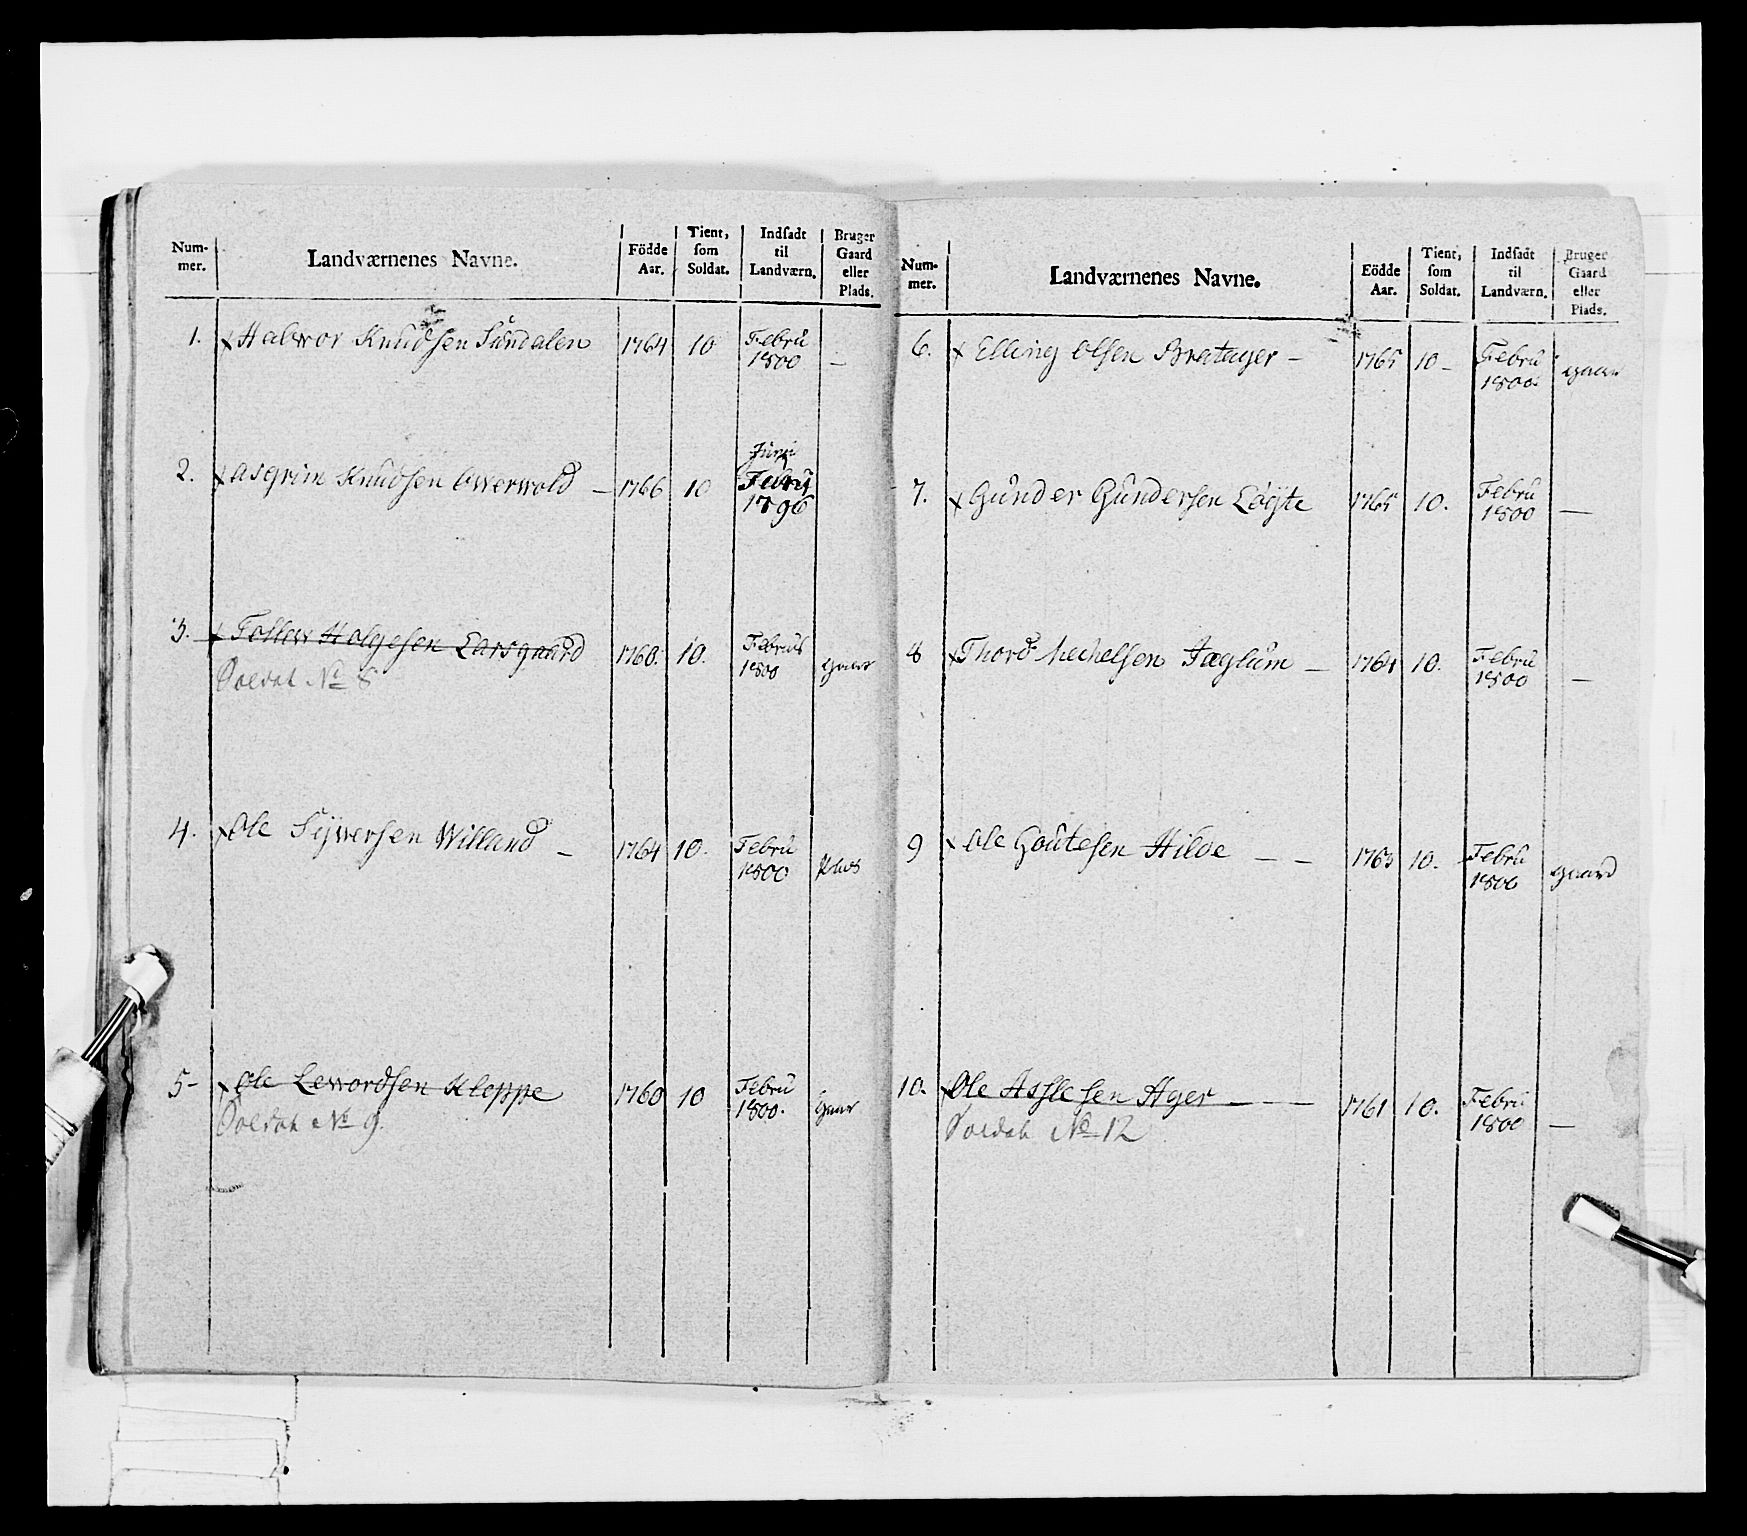 Num-
mer.
Landværnenes Navne.
Födde
Aar.
Tient,
som
Soldat.
Indsadt
til
Landværn.
Bruger
Gaard
eller
Plads.
1. x Halwor Knudsen Sundalen 1764 10 Febru
1800 —
Juni
2. x Asgrim Knudsen Owerwold — 1766 10 Febru
1796
3. x Follew Holgesen Larsgaard 1760. 10. Februs
1800 gaar
Soldat No 8
4. x Ole Sywersen Willand — 1764 10. Febru
1800 Plads
5- x Ole Lewordsen Kleppe 1760 10 Febru
1800. gaar
Soldat No 9.
Num-
mer.
Landværnenes Navne.
Eödde
Aar.
Tient,
som
Soldat.
Indsadt
til
Landværn.
Bruger
Gaard
eller
Plads.
6. x Elling Olsen Bratager — 1765 10 – Febru
1800. gaar
7. x Gunder Gundersen Løyte 1765 10. Febru
1800 —
8 x Thord Mechelsen Jøglum — 1764 10. Febru
1800 —
9 x Ole Goutesen Hilde — — 1763 10. Febru
1800 gaard
10. x Ole Asslesen Ager — — — 1761 10. Febru
1800 —
Soldat No 12